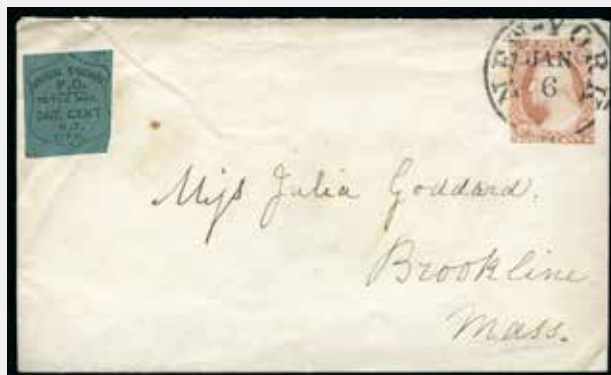 UNION SQUARE
P.O.
TO THE MAIL
ONE CENT
N.Y.
CITY
NEW-YORK
JAN
6
Miſs Julia Goddard.
Brookline
Mass.